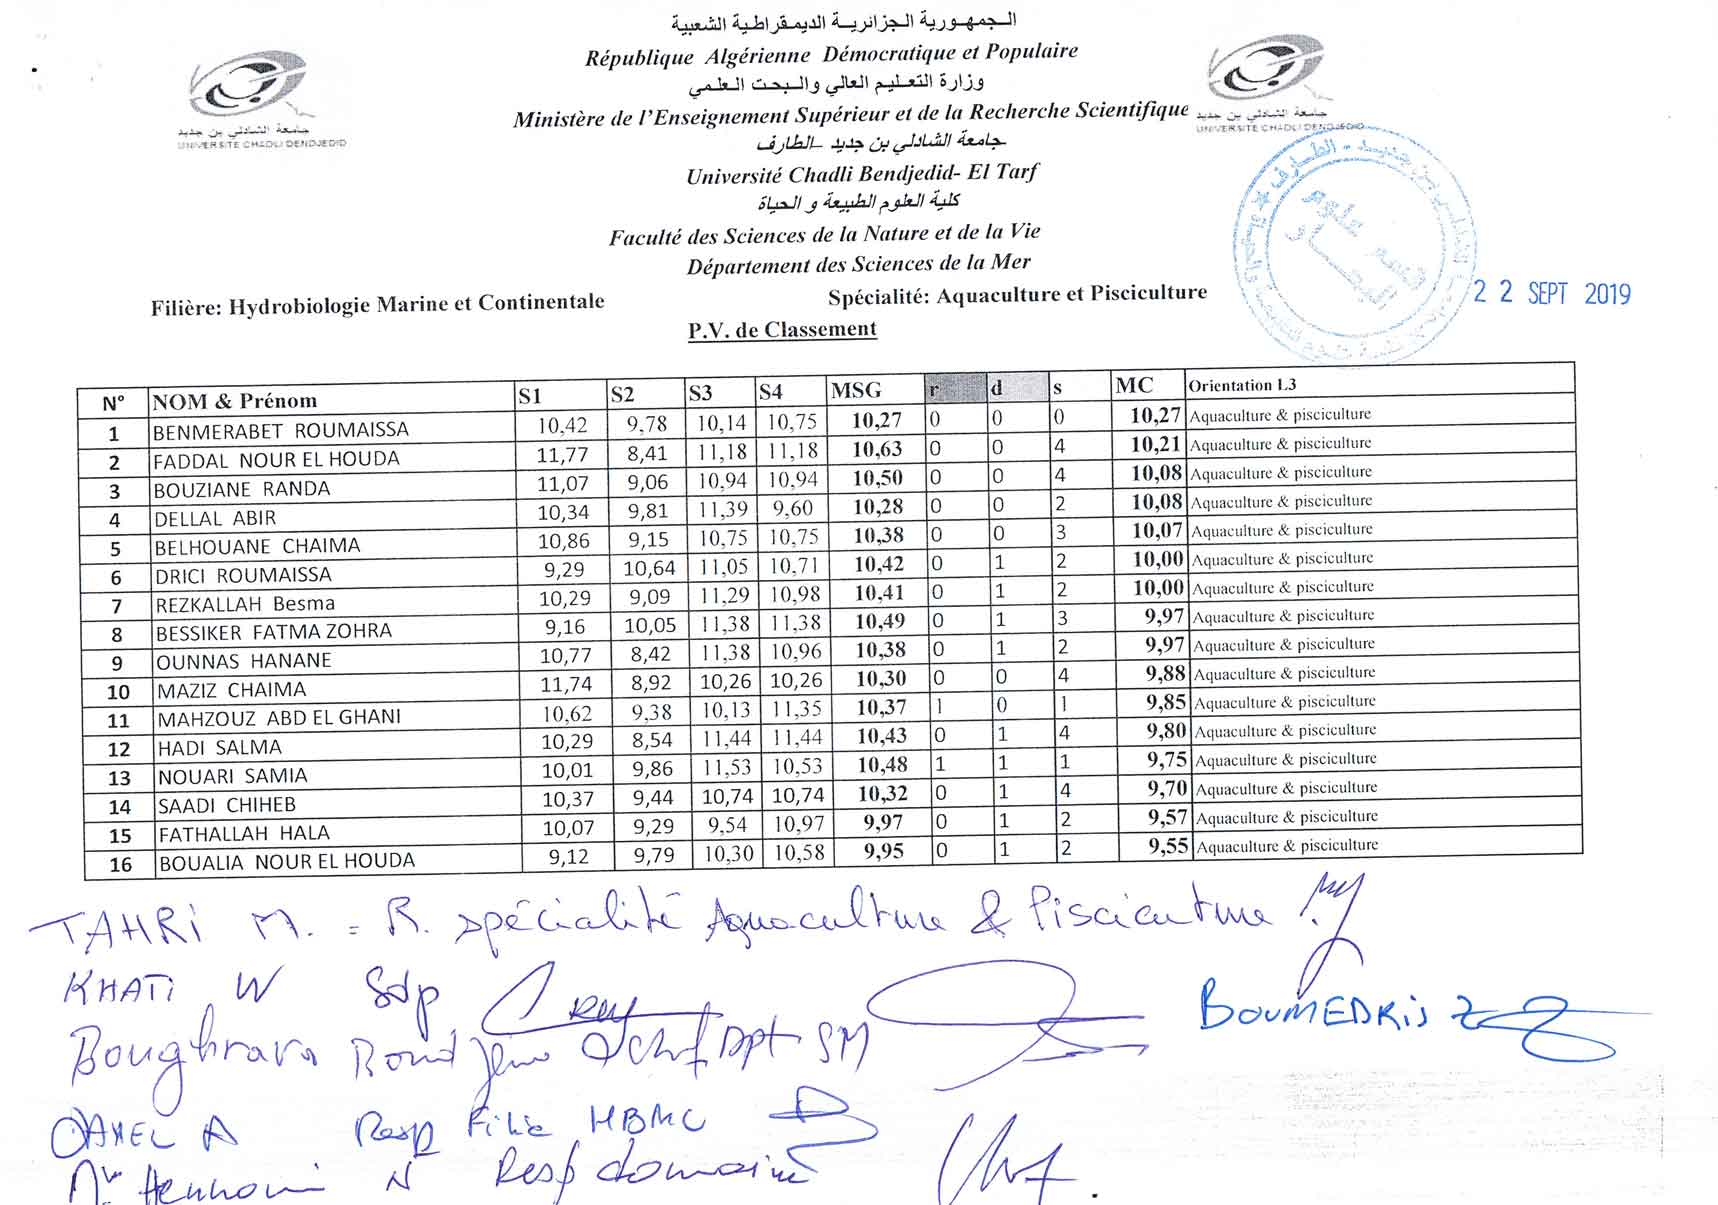 الـجمهـورية الـجزائريـة الديمـقراطـية الشعبية
République Algérienne Démocratique et Populaire
وزارة التعـليـم العالي والـبحـت العـلـمي
Ministère de l'Enseignement Supérieur et de la Recherche Scientifique
جامعة الشاذلي بن جديد
UNIVERSITE CHADLI DENDJEDID
جامعة الشاذلي بن جديد
UNIVERSITE CHADLI DENDJEDID
جامعة الشاذلي بن جديد –الطارف
Université Chadli Bendjedid- El Tarf
كلية العلوم الطبيعة و الحياة
Faculté des Sciences de la Nature et de la Vie
Département des Sciences de la Mer
قسم علوم
البحار
22 SEPT 2019
Filière: Hydrobiologie Marine et Continentale Spécialité: Aquaculture et Pisciculture
P.V. de Classement
N° NOM & Prénom S1 S2 S3 S4 MSG r d s MC Orientation L3
1 BENMERABET ROUMAISSA 10,42 9,78 10,14 10,75 10,27 0 0 0 10,27 Aquaculture & pisciculture
2 FADDAL NOUR EL HOUDA 11,77 8,41 11,18 11,18 10,63 0 0 4 10,21 Aquaculture & pisciculture
3 BOUZIANE RANDA 11,07 9,06 10,94 10,94 10,50 0 0 4 10,08 Aquaculture & pisciculture
4 DELLAL ABIR 10,34 9,81 11,39 9,60 10,28 0 0 2 10,08 Aquaculture & pisciculture
5 BELHOUANE CHAIMA 10,86 9,15 10,75 10,75 10,38 0 0 3 10,07 Aquaculture & pisciculture
6 DRICI ROUMAISSA 9,29 10,64 11,05 10,71 10,42 0 1 2 10,00 Aquaculture & pisciculture
7 REZKALLAH Besma 10,29 9,09 11,29 10,98 10,41 0 1 2 10,00 Aquaculture & pisciculture
8 BESSIKER FATMA ZOHRA 9,16 10,05 11,38 11,38 10,49 0 1 3 9,97 Aquaculture & pisciculture
9 OUNNAS HANANE 10,77 8,42 11,38 10,96 10,38 0 1 2 9,97 Aquaculture & pisciculture
10 MAZIZ CHAIMA 11,74 8,92 10,26 10,26 10,30 0 0 4 9,88 Aquaculture & pisciculture
11 MAHZOUZ ABD EL GHANI 10,62 9,38 10,13 11,35 10,37 1 0 1 9,85 Aquaculture & pisciculture
12 HADI SALMA 10,29 8,54 11,44 11,44 10,43 0 1 4 9,80 Aquaculture & pisciculture
13 NOUARI SAMIA 10,01 9,86 11,53 10,53 10,48 1 1 1 9,75 Aquaculture & pisciculture
14 SAADI CHIHEB 10,37 9,44 10,74 10,74 10,32 0 1 4 9,70 Aquaculture & pisciculture
15 FATHALLAH HALA 10,07 9,29 9,54 10,97 9,97 0 1 2 9,57 Aquaculture & pisciculture
16 BOUALIA NOUR EL HOUDA 9,12 9,79 10,30 10,58 9,95 0 1 2 9,55 Aquaculture & pisciculture
TAHRI M. = R. spécialité Aquaculture & Pisciculture
KHATI W Sdp
BOUMEDRIS Z
Dpt SM
A Resp HBMC
N Resp domaine